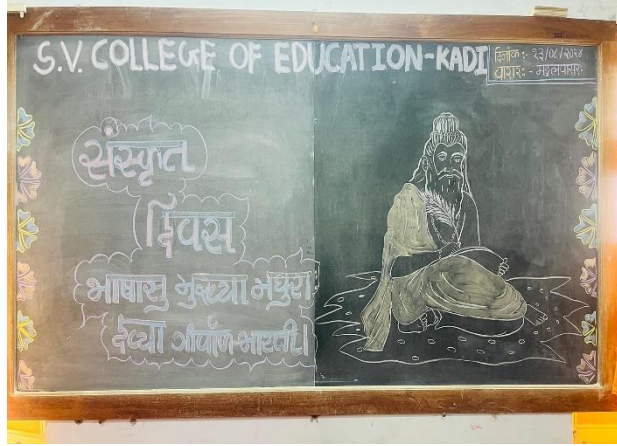 S.V. COLLEGE OF EDUCATION-KADI
दिनांक :- २३/०८/२०२४
वासरः - मङ्गलवासरः
संस्कृत
दिवस
भाषासु मुख्या मधुरा
दिव्या गीर्वाण भारती।